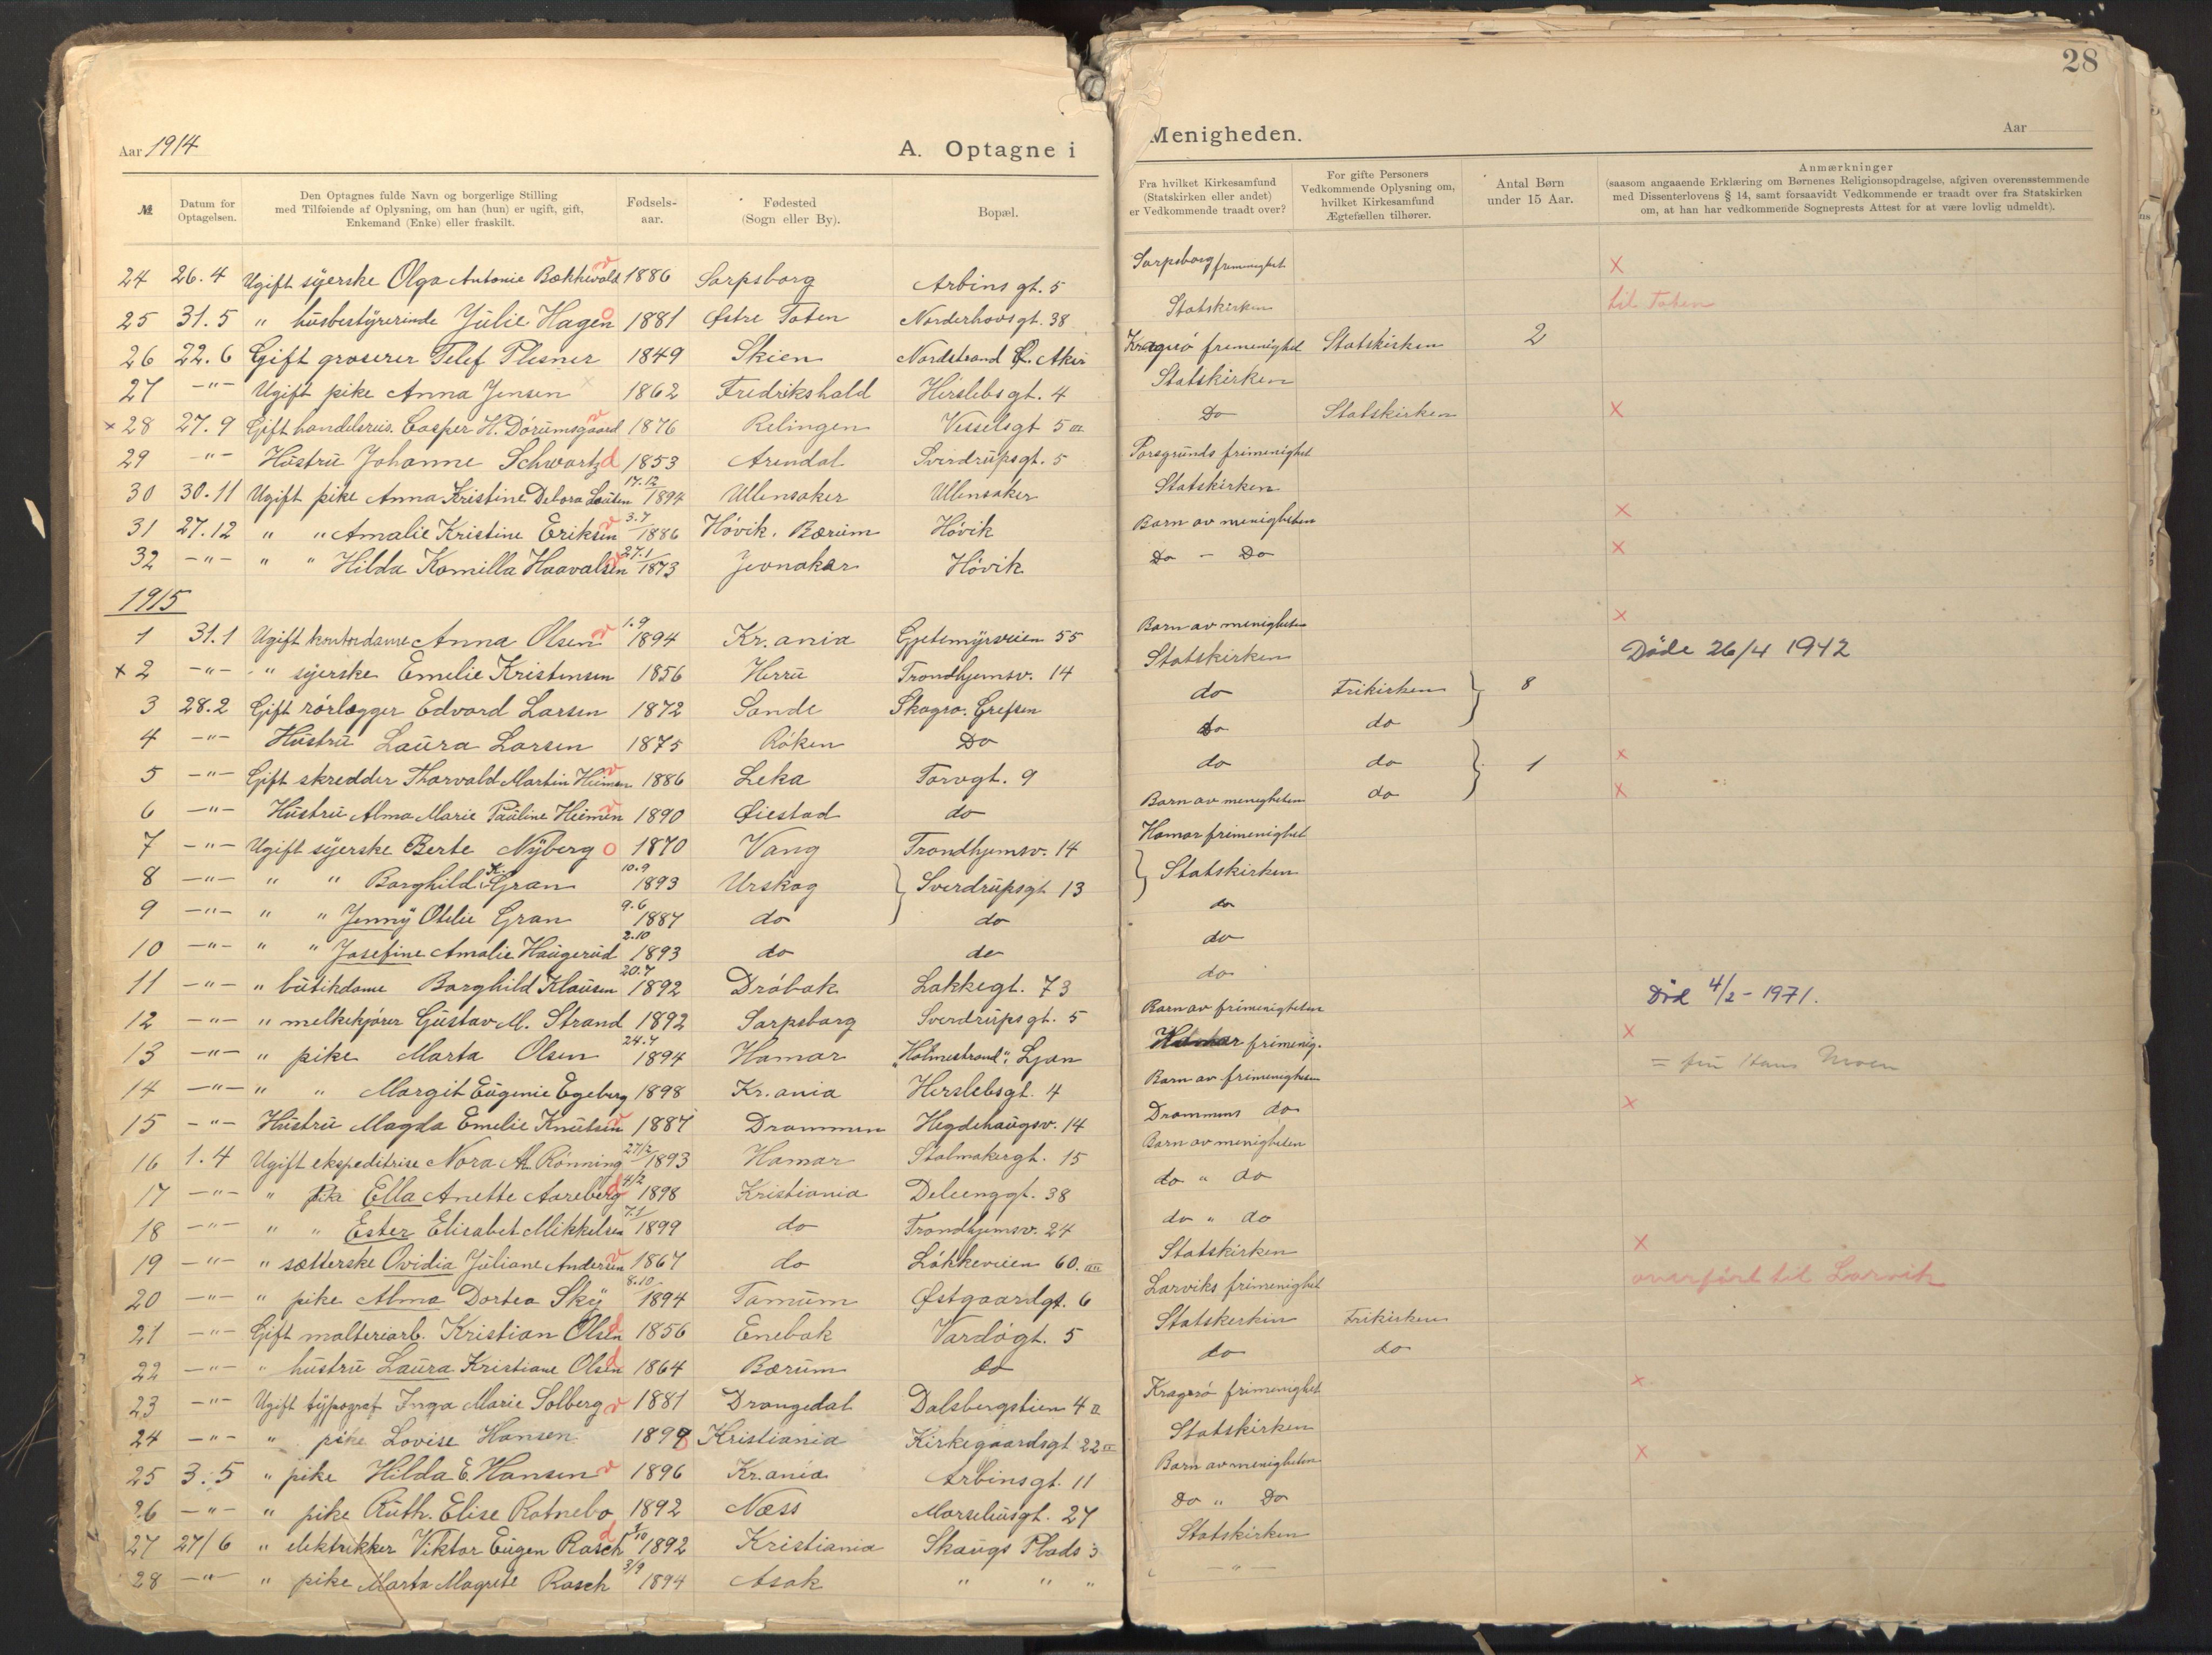 28
Aar 1914
A. Optagne i Menigheden.
Aar
№
Datum for Optagelsen.
Den Optagnes fulde Navn og borgerlige Stilling med Tilføiende af Oplysning, om han (hun) er ugift, gift, Enkemand (Enke) eller fraskilt.
Fødselsaar.
Fødested (Sogn eller By).
Bopæl.
Fra hvilket Kirkesamfund (Statskirken eller andet) er Vedkommende traadt over?
For gifte Personers Vedkommende Oplysning om, hvilket Kirkesamfund Ægtefællen tilhører.
Antal Børn under 15 Aar.
Anmærkninger (saasom angaaende Erklæring om Børnenes Religionsopdragelse, afgiven overensstemmende med Dissenterlovens § 14, samt forsaavidt Vedkommende er traadt over fra Statskirken om, at han har vedkommende Sogneprests Attest for at være lovlig udmeldt).
24 26.4 Ugift syerske Olga Antonie Bækkevold v 1886 Sarpsborg Arbins gt. 5 Sarpsborg frimenighet x
25 31.5 " husbestyrerinde Julie Hagen o 1881 Østre Toten Norderhovsgt. 38 Statskirken til Toten
26 22.6 Gift groserer Telef Plesner 1849 Skien Nordstrand Ø. Aker Kragerø frimenighet Statskirken 2
27 -"- Ugift pike Anna Jensen x 1862 Fredrikshald Herslebsgt. 4 Statskirken
x 28 27.9 Gift handelsreis. Casper H. Dørumsgaard v 1876 Relingen Vesselsgt 5 III Do Statskirken x
29 -"- Hustru Johanne Schwartz d 1853 Arendal Sverdrupsgt. 5 Porsgrunds frimenighet
30 30.11 Ugift pike Anna Kristine Debora Lauten 17.12/1894 Ullensaker Ullensaker Statskirken
31 27.12 " " Amalie Kristine Eriksen v 3.7/1886 Høvik. Bærum Høvik Barn av menigheten x
32 -"- " " Hilda Kamilla Haavalsen v 27.1/1873 Jevnaker Høvik Do - Do x
1915
1 31.1 Ugift kontordame Anna Olsen v 1.9/1894 Kr.ania Gjetemyrsveien 55 Barn av menigheten x
x 2 -"- " syerske Emelie Kristensen 1856 Herru Trondhjemsv. 14 Statskirken Døde 26/4 1942
3 28.2 Gift rørlægger Edvard Larsen 1872 Sande Skogro. Grefsen do Frikirken } 8
4 -"- Hustru Laura Larsen 1875 Røken Do Do do
5 -"- Gift skredder Thorvald Martin Heimen v 1886 Leka Torvgt. 9 do do } 1 x
6 -"- Hustru Alma Marie Pauline Heimen v 1890 Øiestad do Barn av menigheten do x
7 -"- Ugift syerske Berte Nyberg o 1870 Vang Trondhjemsv. 14 Hamar frimenighet
8 -"- " " Borghild K. Gran 10.9/1893 Urskog } Sverdrupsgt 13 } Statskirken
9 -"- " " Jenny Otelie Gran 9.6/1887 do do do
10 -"- " " Josefine Amalie Haugerud 2.10/1893 do do do
11 -"- " butikdame Borghild Klausen 20.7/1892 Drøbak Lakkegt. 73 do
12 -"- " melkekjører Gustav M. Strand 1892 Sarpsborg Sverdrups gt. 5 Barn av frimenigheten Død 4/2-1971.
13 -"- " pike Marta Olsen 24.7/1894 Hamar "Holmestrand", Ljan Hamar frimenig. x
14 -"- " " Margit Eugenie Egeberg 1898 Kr.ania Herslebsgt. 4 Barn av frimenigheten = fru Hans Moen
15 -"- Hustru Magda Emelie Knutsen v 1887 Drammen Hegdehaugsv. 14 Drammens do x
16 1.4 Ugift ekspeditrise Nora M. Rønning 27/2/1893 Hamar Stolmakergt. 15 Barn av menigheten
17 -"- " Pike Ella Anette Aareberg d 4/2 1898 Kristiania Deleenggt. 38 do " do
18 -"- " " Ester Elisabet Mikkelsen 7.1/1899 do Trondhjemsv. 24 do " do
19 -"- " sætterske Ovidia Juliane Andersen v 1867 do Løkkeveien 60. III Statskirken x
20 -"- " pike Alma Dortea Sky 8.10/1894 Tamum Østgaardgt. 6 Larviks frimenighet overført til Larvik
21 -"- Gift malteriarb. Kristian Olsen d 1856 Enebak Vardøgt. 5 Statskerkin Frikirken
22 -"- " hustru Laura Kristiane Olsen d 1864 Bærum do do do
23 -"- Ugift typograf Inga Marie Solberg v 1881 Drangedal Dalsbergstien 4 II Kragerø frimenighet x
24 -"- " pike Lovise Hansen 1899 Kristiania Kirkegaardsgt 22 II Statskirken
25 3.5 " pike Hilda E. Hansen v 1896 Kr.ania Arbinsgt. 11 Barn av menigheten x
26 -"- " pike Ruth. Elise Ratnebo 1892 Næss Marseliusgt. 27 Do " Do
27 27/6 " elektrikker Viktor Eugen Rasch d 1/10 1892 Kristiania Skaugs Plads 3 Statskirken
28 -"- " pike Marta Magrete Rasch 3/9 1894 Asak " " " -"-